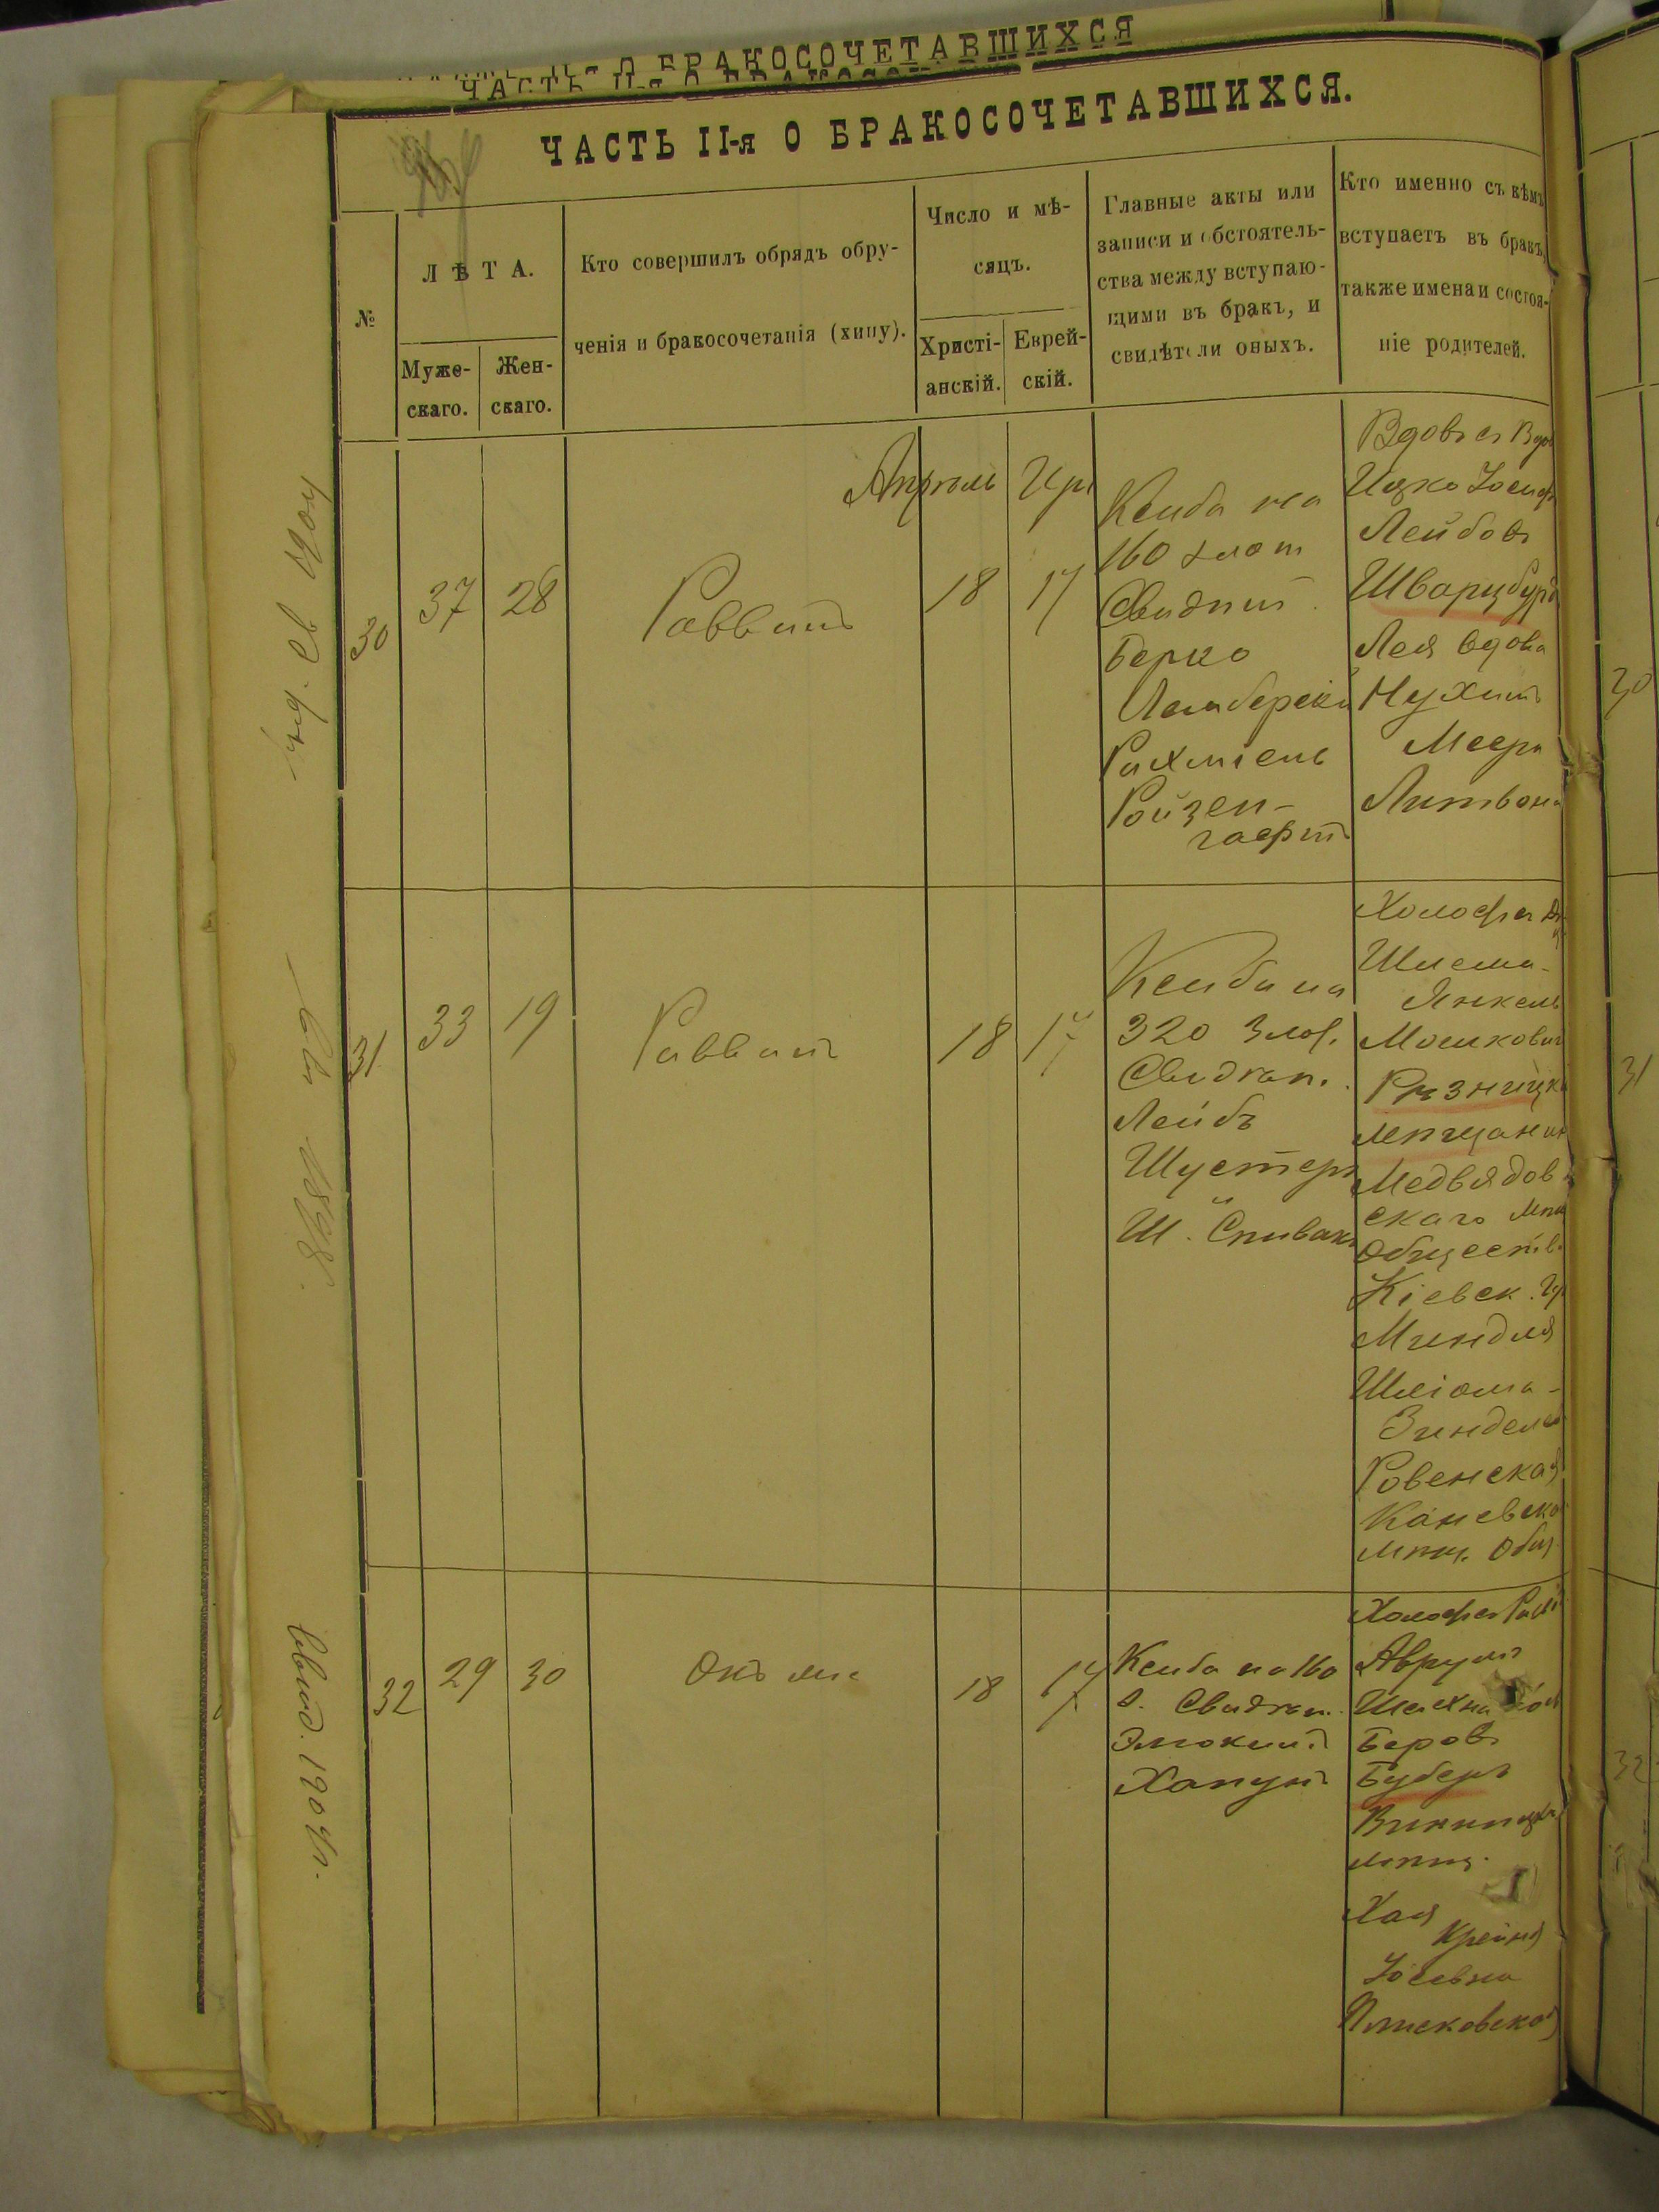 ЧАСТЬ II-я О БРАКОСОЧЕТАВШИХСЯ
ЧАСТЬ II-я О
ЧАСТЬ II-я О БРАКОСОЧЕТАВШИХСЯ.
№
ЛѢТА.
Муже-
скаго.
Жен-
скаго.
Кто совершилъ обрядъ обру-
ченія и бракосочетанія (хипу).
Число и мѣ-
сяцъ.
Христі-
анскій.
Еврей-
скій.
Главные акты или
записи и обстоятель-
ства между вступаю-
щими въ бракъ, и
свидѣтели оныхъ.
Кто именно съ кѣмъ
вступаетъ въ бракъ,
также имена и состоя-
ніе родителей.
30
37
28
Раввинъ
Апрѣль
18
Иръ
17
Ксиба на
160 злот
Свидѣт.
Берко
Рахміель
Ройзен-
гафтъ
Вдовъ съ Вдов
Ицко Іосиф
Лейбовъ
Шварцбурд
Лея вдова
Нухимъ
Меера
Литвона
31
33
19
Раввинъ
18
17
Ксиба на
320 Злот.
Свидѣт.
Лейбъ
Шустеръ
и
Ш. Спивакъ
Холостъ съ Дѣ
Шлема-
Янкель
Мошкович
Рѣзницк
мѣщанин
Медвядов
скаго мѣщ
Обществ.
Кіевск. Гу
Миндля
Шліома-
Зинделев
Ровенская
Каневско
мѣщ. Общ
32
29
30
Онъ же
18
17
Ксиба на 160
з. Свидѣт.
Хапунъ
Холостъ съ
Аврумъ
Шахна
Беровъ
Буберъ
Винницк
мѣщ.
Хая
Крейня
Іосевна
Плисковская
Свид. 1904 г.
30
31
32